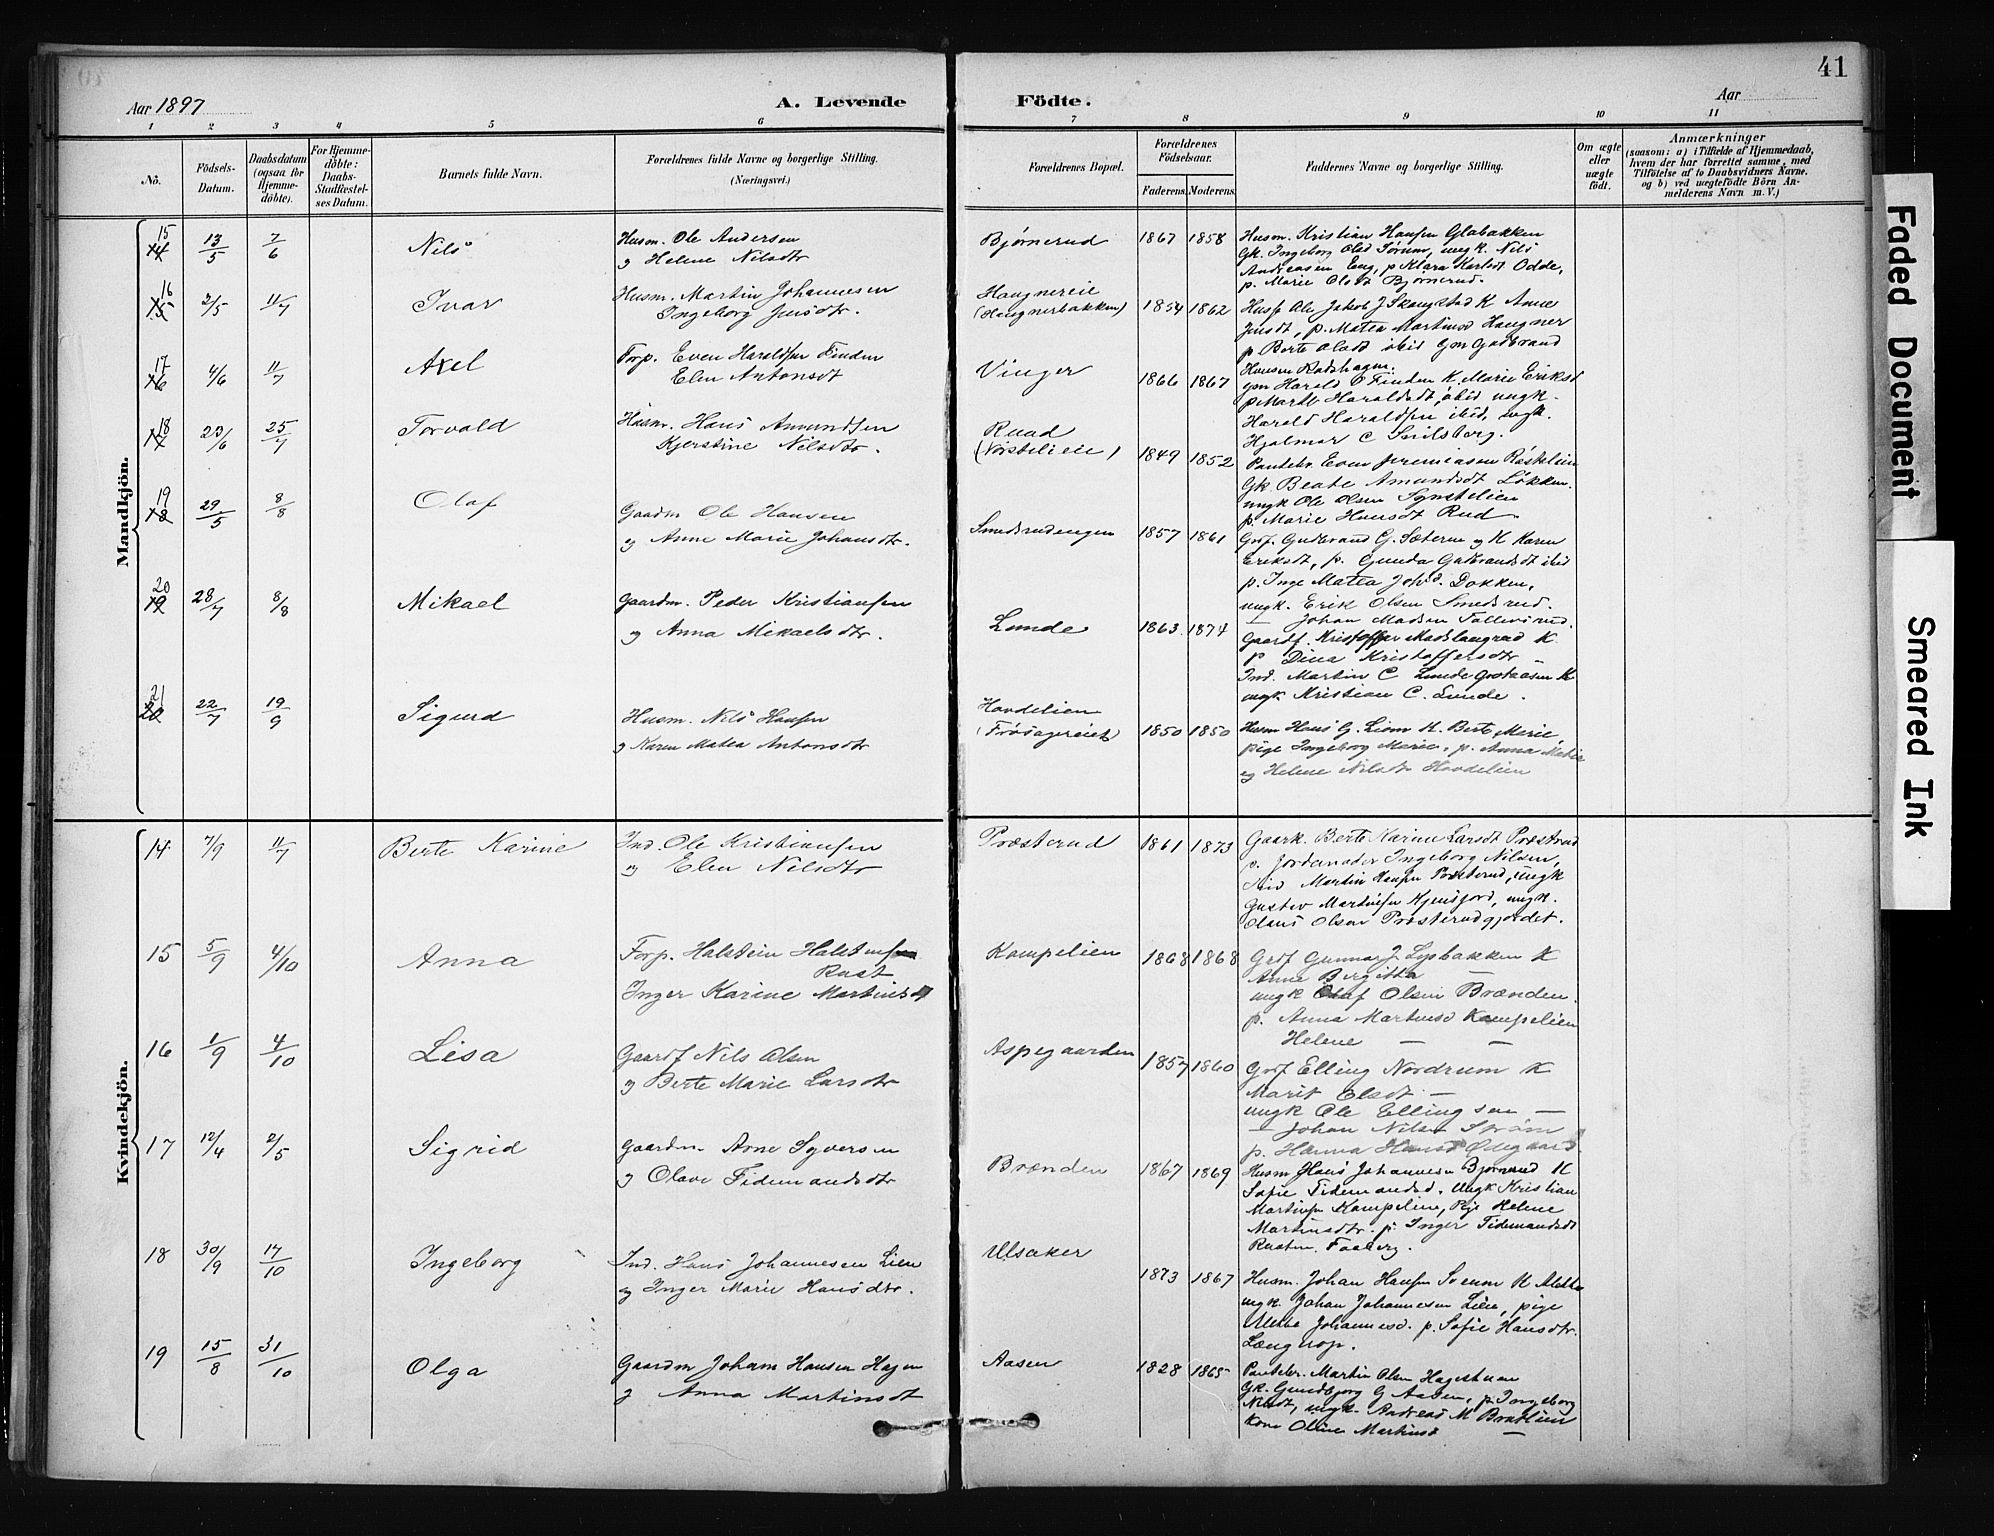 41
Aar 1897
A. Levende
Födte.
Aar
1 2 3 4 5 6 7 8 9 10 11
No.
Födsels-
Datum.
Daabsdatum
(ogsaa for
Hjemme-
döbte).
For Hjemme-
döbte:
Daabs-
Stadfæstel-
ses Datum.
Barnets fulde Navn.
Forældrenes fulde Navne og borgerlige Stilling.
(Næringsvei.)
Forældrenes Bopæl.
Forældrenes
Födselsaar.
Faderens. Moderens.
Faddernes Navne og borgerlige Stilling.
Om ægte
eller
uægte
født.
Anmærkninger
(saasom: a) i Tilfælde af Hjemmedaab,
hvem der har forrettet samme, med
Tilföielse af to Daabsvidners Navne.
og b) ved uægtefödte Börn An-
melderens Navn m. V.)
Mandkjön.
15 14 13/5 7/6 Nils
Husm. Ole Andersen
og Helene Nilsdtr
Bjørnerud 1867 1858
Husm. Kristian Hansen Glabakken
Gk. Ingeborg Olsd ungk. Nils
Andreasen Eng, p. Klara Karlsdt Odde,
p. Marie Olsdt Bjørnerud.
16 15 2/5 11/7 Ivar
Husm. Martin Johannesen
Ingeborg
Haugnereie
(Haugnerbakken) 1854 1862
Jakob J Skaugstad K Anne
p. Matea Martinsd Haugner
p Berte Olsdt ibid
17 16 4/6 11/7 Axel
Forp. Even Haraldsen Finden
Elen Antonsdt
Vinger 1866 1867
Hansen
gm Harald O Finden K. Marie Eriksd
p Marthe Haraldsdt ibid ungk.
Harald Haraldsen ibid, ungk.
Hjalmar C
18 17 23/6 25/7 Torvald
Husm. Hans Amundsen
Kjerstine Nilsdtr.
Ruud
1849 1852
Even Jeremiasen
Gk. Beate Amundsdt Løkken.
ungk Ole Olsen
p. Marie Hansdt Rud
19 18 29/5 8/8 Olaf
Gaardm Ole Hansen
og Anne Marie Johansdtr.
Smedsrudengen 1857 1861
Gudbrand G. Sæterne og K Karen
Eriksdt, p. Gunda Gudbrandsdt ibid
p. Inge Matea Dokken,
ungk. Erik Olsen Smedsrud.
20 19 28/7 8/8 Mikael
Gaardm. Peder Kristiansen
og Anna Mikaelsdtr.
Lunde 1863. 1874
Johan Madsen
Gaardf. Kristoffer K.
p Dina Kristoffersdtr
Ind. Martin C Lunde K
ungk Kristian C. Lunde.
21 20 22/7 19/9 Sigurd
Husm. Nils Hansen
og Karen Matea Antonsdtr
Hovdelien
(Frøsagereiet) 1850 1850
Husm Hans G. Lien K. Berte Marie,
pige Ingeborg Marie, p. Anna
og Helene Nilsdt Hovdelien
Kvindekjön.
14 7/9 11/7 Berte Karine
Ind. Ole Kristiansen
og Elen Nilsdtr
Præsterud 1861 1873
Gaark. Berte Karine Larsdt Præstrud
p. Jordemoder Ingeborg Nilsen,
Martin Hansen Præsterud, ungk
Gustav Martinsen ungk.
Olaus Olsen Præsterudgjordet.
15 5/9 4/10 Anna
Forp. Halstein Halstensen
Rust
Inger Karine Martinsdt
Kampelien 1868 1868
Grdf Gunnar J. Lysbakken K
Anne Bergitta —
ungk Olaf Olsen Brænden.
p. Anna Martinsd Kampelien
Helene — —
16 1/9 4/10 Lisa
Gaardf Nils Olsen
og Berte Marie Larsdtr
Aspegaarden 1857 1860
Grdf Elling Nordrum K
Marit Olsdt —
ungk Ole Ellingsen —
— Johan Nilsen Strøm
p. Hanna Hansd
17 12/4 2/5 Sigrid
Gaardm Arne Syversen
og Olave Tidemandsdtr
Brænden 1867 1869
Husm Hans Johannesen Bjørnerud K
Sofie Tidemandsd. ungk Kristian
Martinsen Kampelien, Pige Helene
Martinsdtr. p. Inger Tidemandsdt
Faaberg.
18 30/9 17/10 Ingeborg
Ind. Hans Johannesen Lien
og Inger Marie Hansdtr.
Ulsaker
1873 1867
Husm. Johan Hansen Sveum K
ungk. Johan Johannesen Lien, pige
Johannesd. p. Sofie Hansdtr.
19 15/8 31/10 Olga
Gaardm Johan Hansen Hagen
og Anna Martinsdt
Aasen 1828 1865
Martin Olsen Hagestuen
Gk. Gundbjørg G Aasen, p. Ingeborg
ungk. Andreas M Brotlien
Kone Oline Martinsd —
Faded Document
Smeared Ink